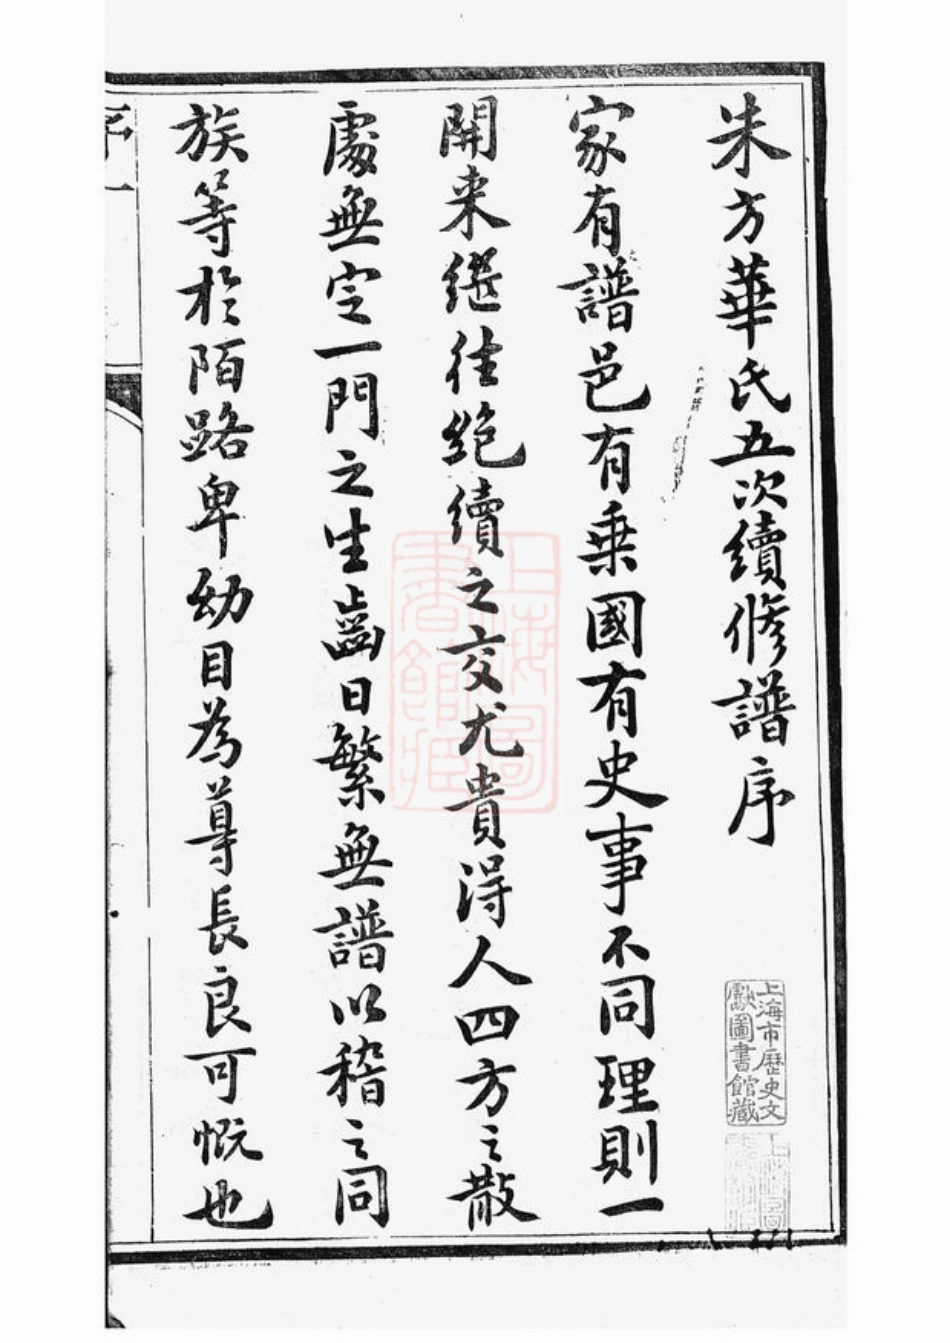 朱方華氏五次續修譜序
家有譜邑有乗國有史事不同理則一
開来繼往絶續之交尤貴得人四方之散
處無定一門之生齒日繁無譜以稽之同
族等於陌路卑幼目為尊長良可慨也
序一
上海市歷史文
獻圖書館藏
上海圖
書館藏